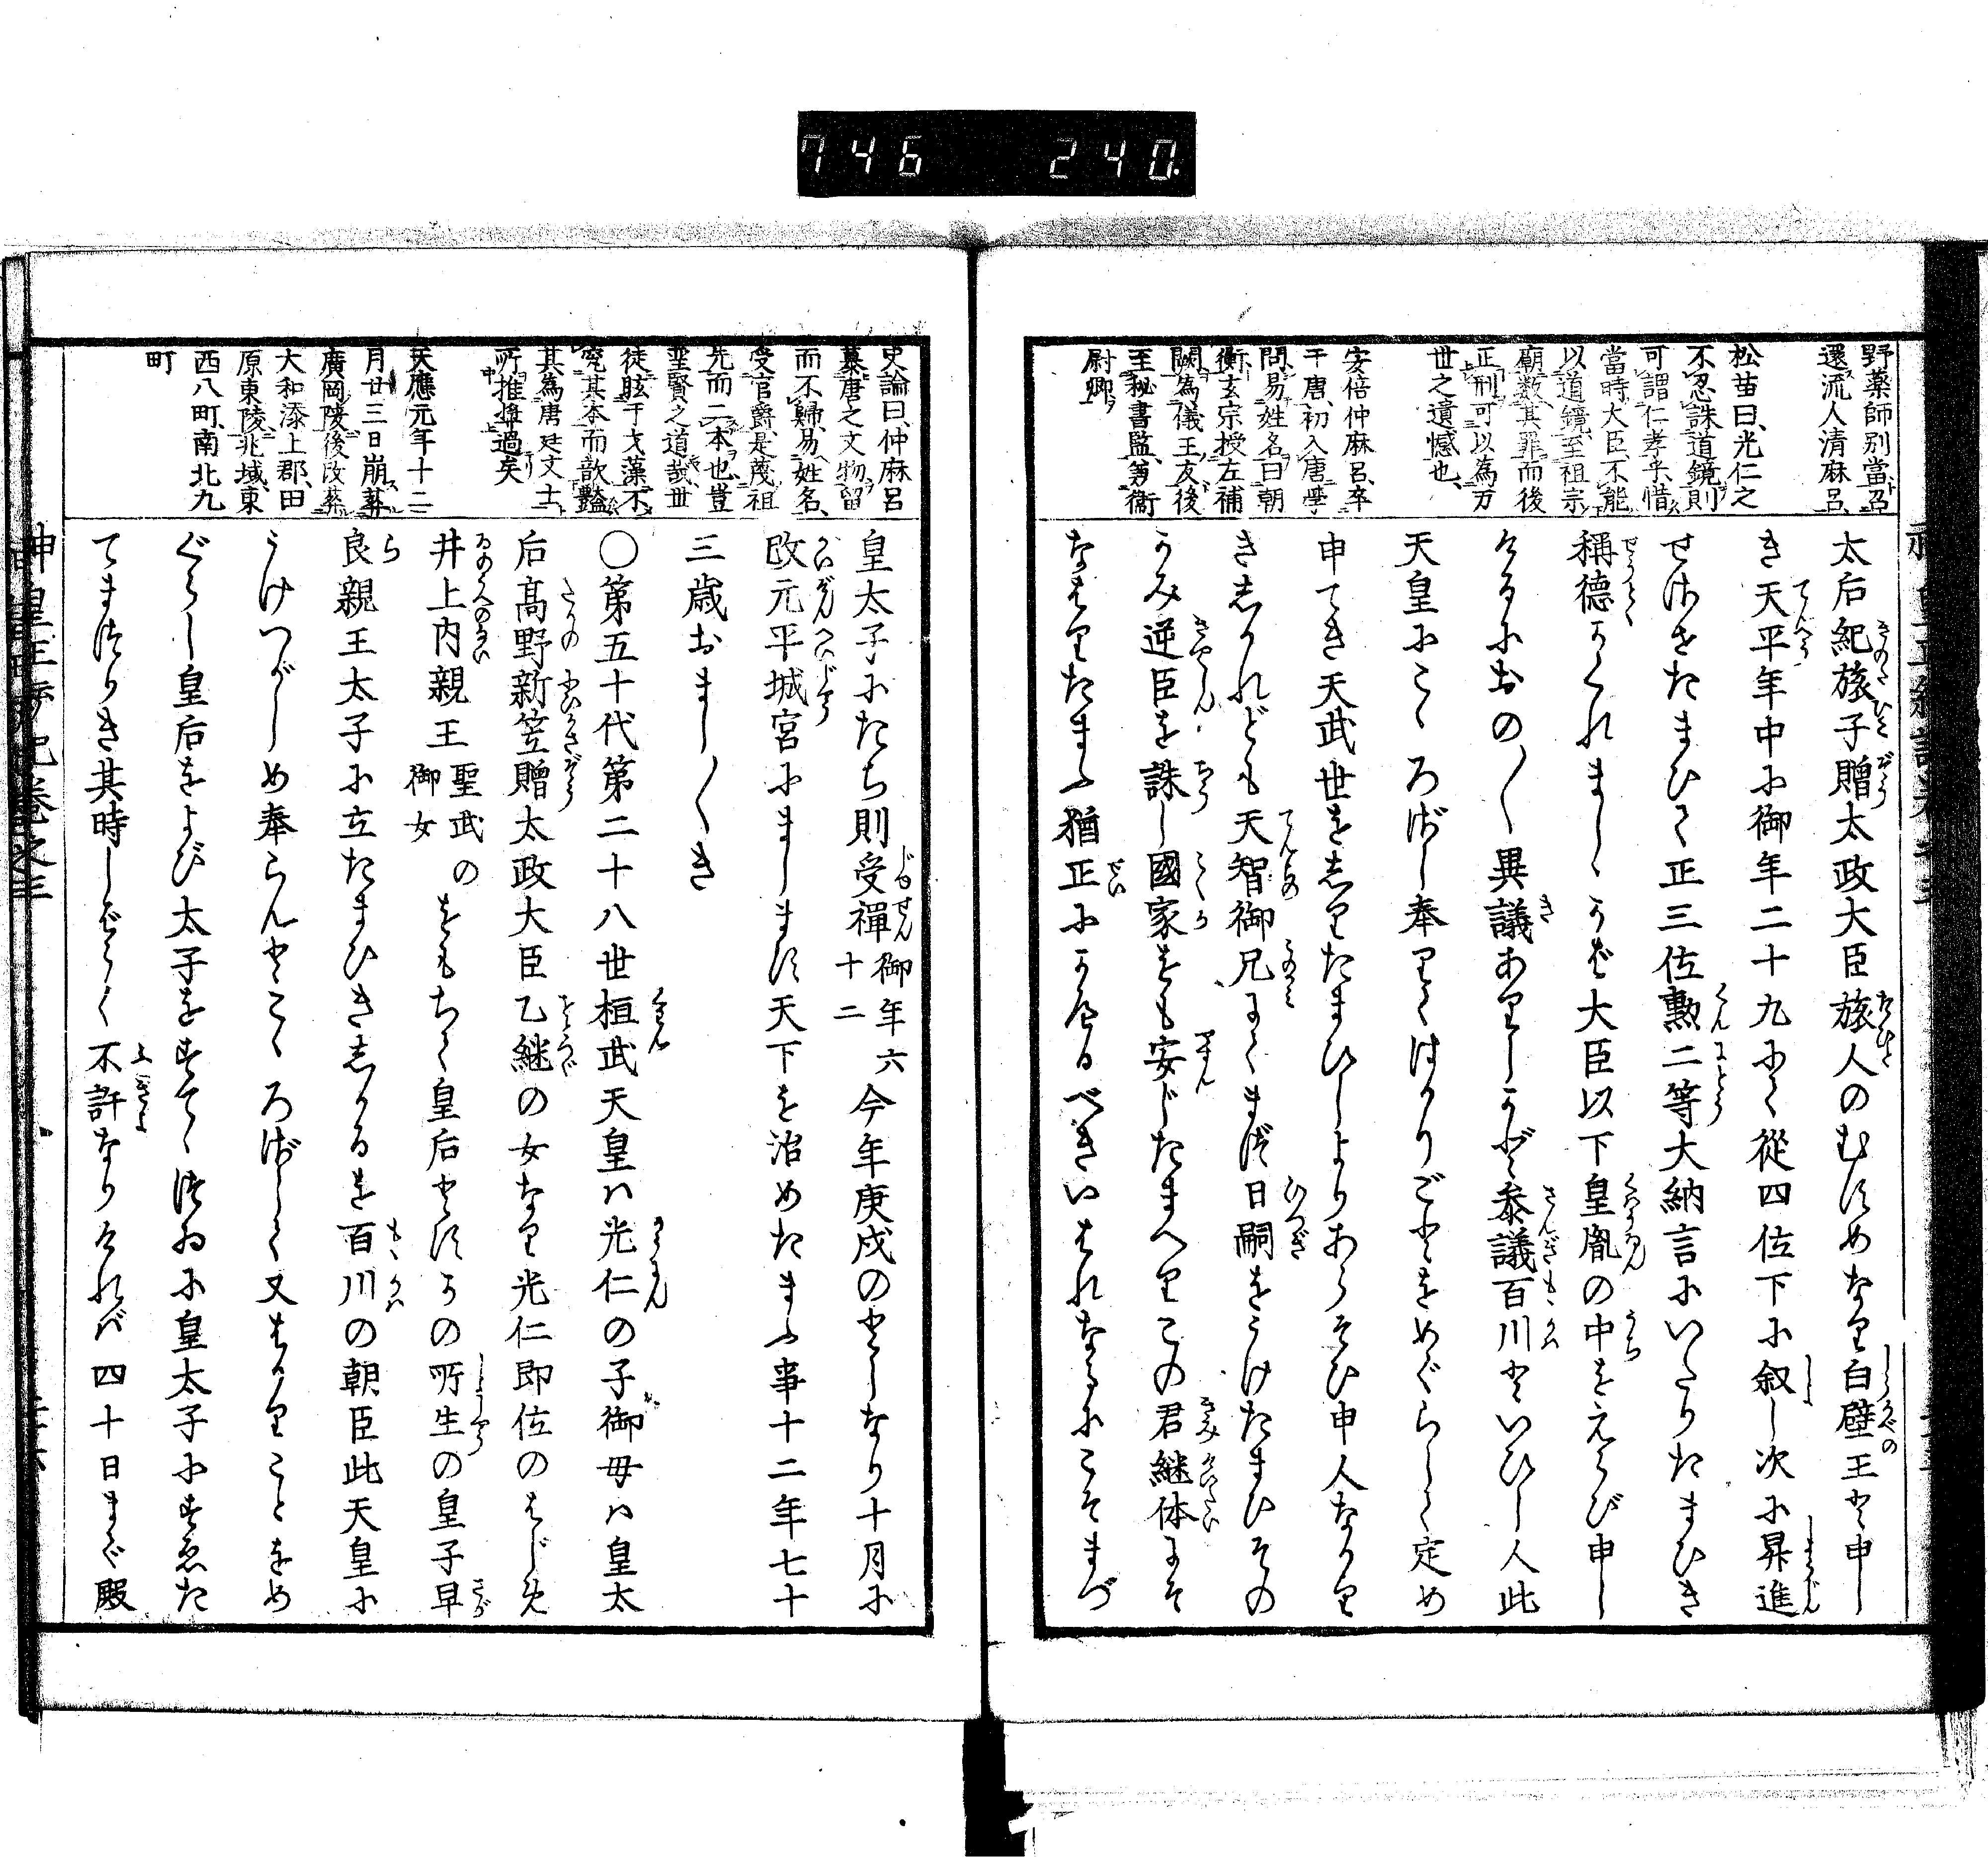 746 240
野藥師別當召
還流人清麻呂
松苗曰光仁之
不忍誅道鏡則
可謂仁孝乎惜
當時大臣不能
以道鏡至祖宗
廟数其罪而後
正刑可以為万
世之遺憾也
安倍仲麻呂卒
于唐初入唐學
問易姓名曰朝
衡玄宗授左補
闕為儀王友後
至秘書監兼衛
尉卿
太后紀旅子贈太政大臣旅人のむすめなり白壁王と申し
き天平年中に御年二十九にて從四位下に叙し次に昇進
せさせたまひて正三位勲二等大納言にいたりたまひき
稱德かくれまししかば大臣以下皇胤の中をえらび申し
けるにおの〱異議ありしかど參議百川といひし人此
天皇にこゝろざし奉りてはかりごとをめぐらして定め
申てき天武世をしりたまひしよりあらそひ申人なかり
きしかれども天智御兄にてまづ日嗣をうけたまひその
かみ逆臣を誅し國家をも安じたまへりこの君継体にそ
なはりたまふ猶正にかへるべきいはれなるにこそまづ
史論曰仲麻呂
慕唐之文物留
而不歸易姓名
受官爵是蔑祖
先而二本也豈
聖賢之道哉世
徒眩于文藻不
究其本而歆豔
其為唐廷文士
所推奬過矣
天應元年十二
月廿三日崩葬
廣岡陵後改葬
大和添上郡田
原東陵兆域東
西八町南北九
町
皇太子にたち則受禪御年六十二今年庚戌のとしなり十月に
改元平城宮にまします天下を治めたまふ事十二年七十
三歳おまし〱き
〇第五十代第二十八世桓武天皇ハ光仁の子御母ハ皇太
后高野新笠贈太政大臣乙継の女なり光仁即位のはじめ
井上内親王聖武の御女をもちて皇后とすかの所生の皇子早
良親王太子に立たまひきしかるを百川の朝臣此天皇に
うけつがしめ奉らんとこゝろざして又はかりことをめ
ぐらし皇后をよび太子をすてゝつゐに皇太子にすゑた
てまつりき其時しばらく不許なりけれバ四十日まで殿
神皇正統記巻之三